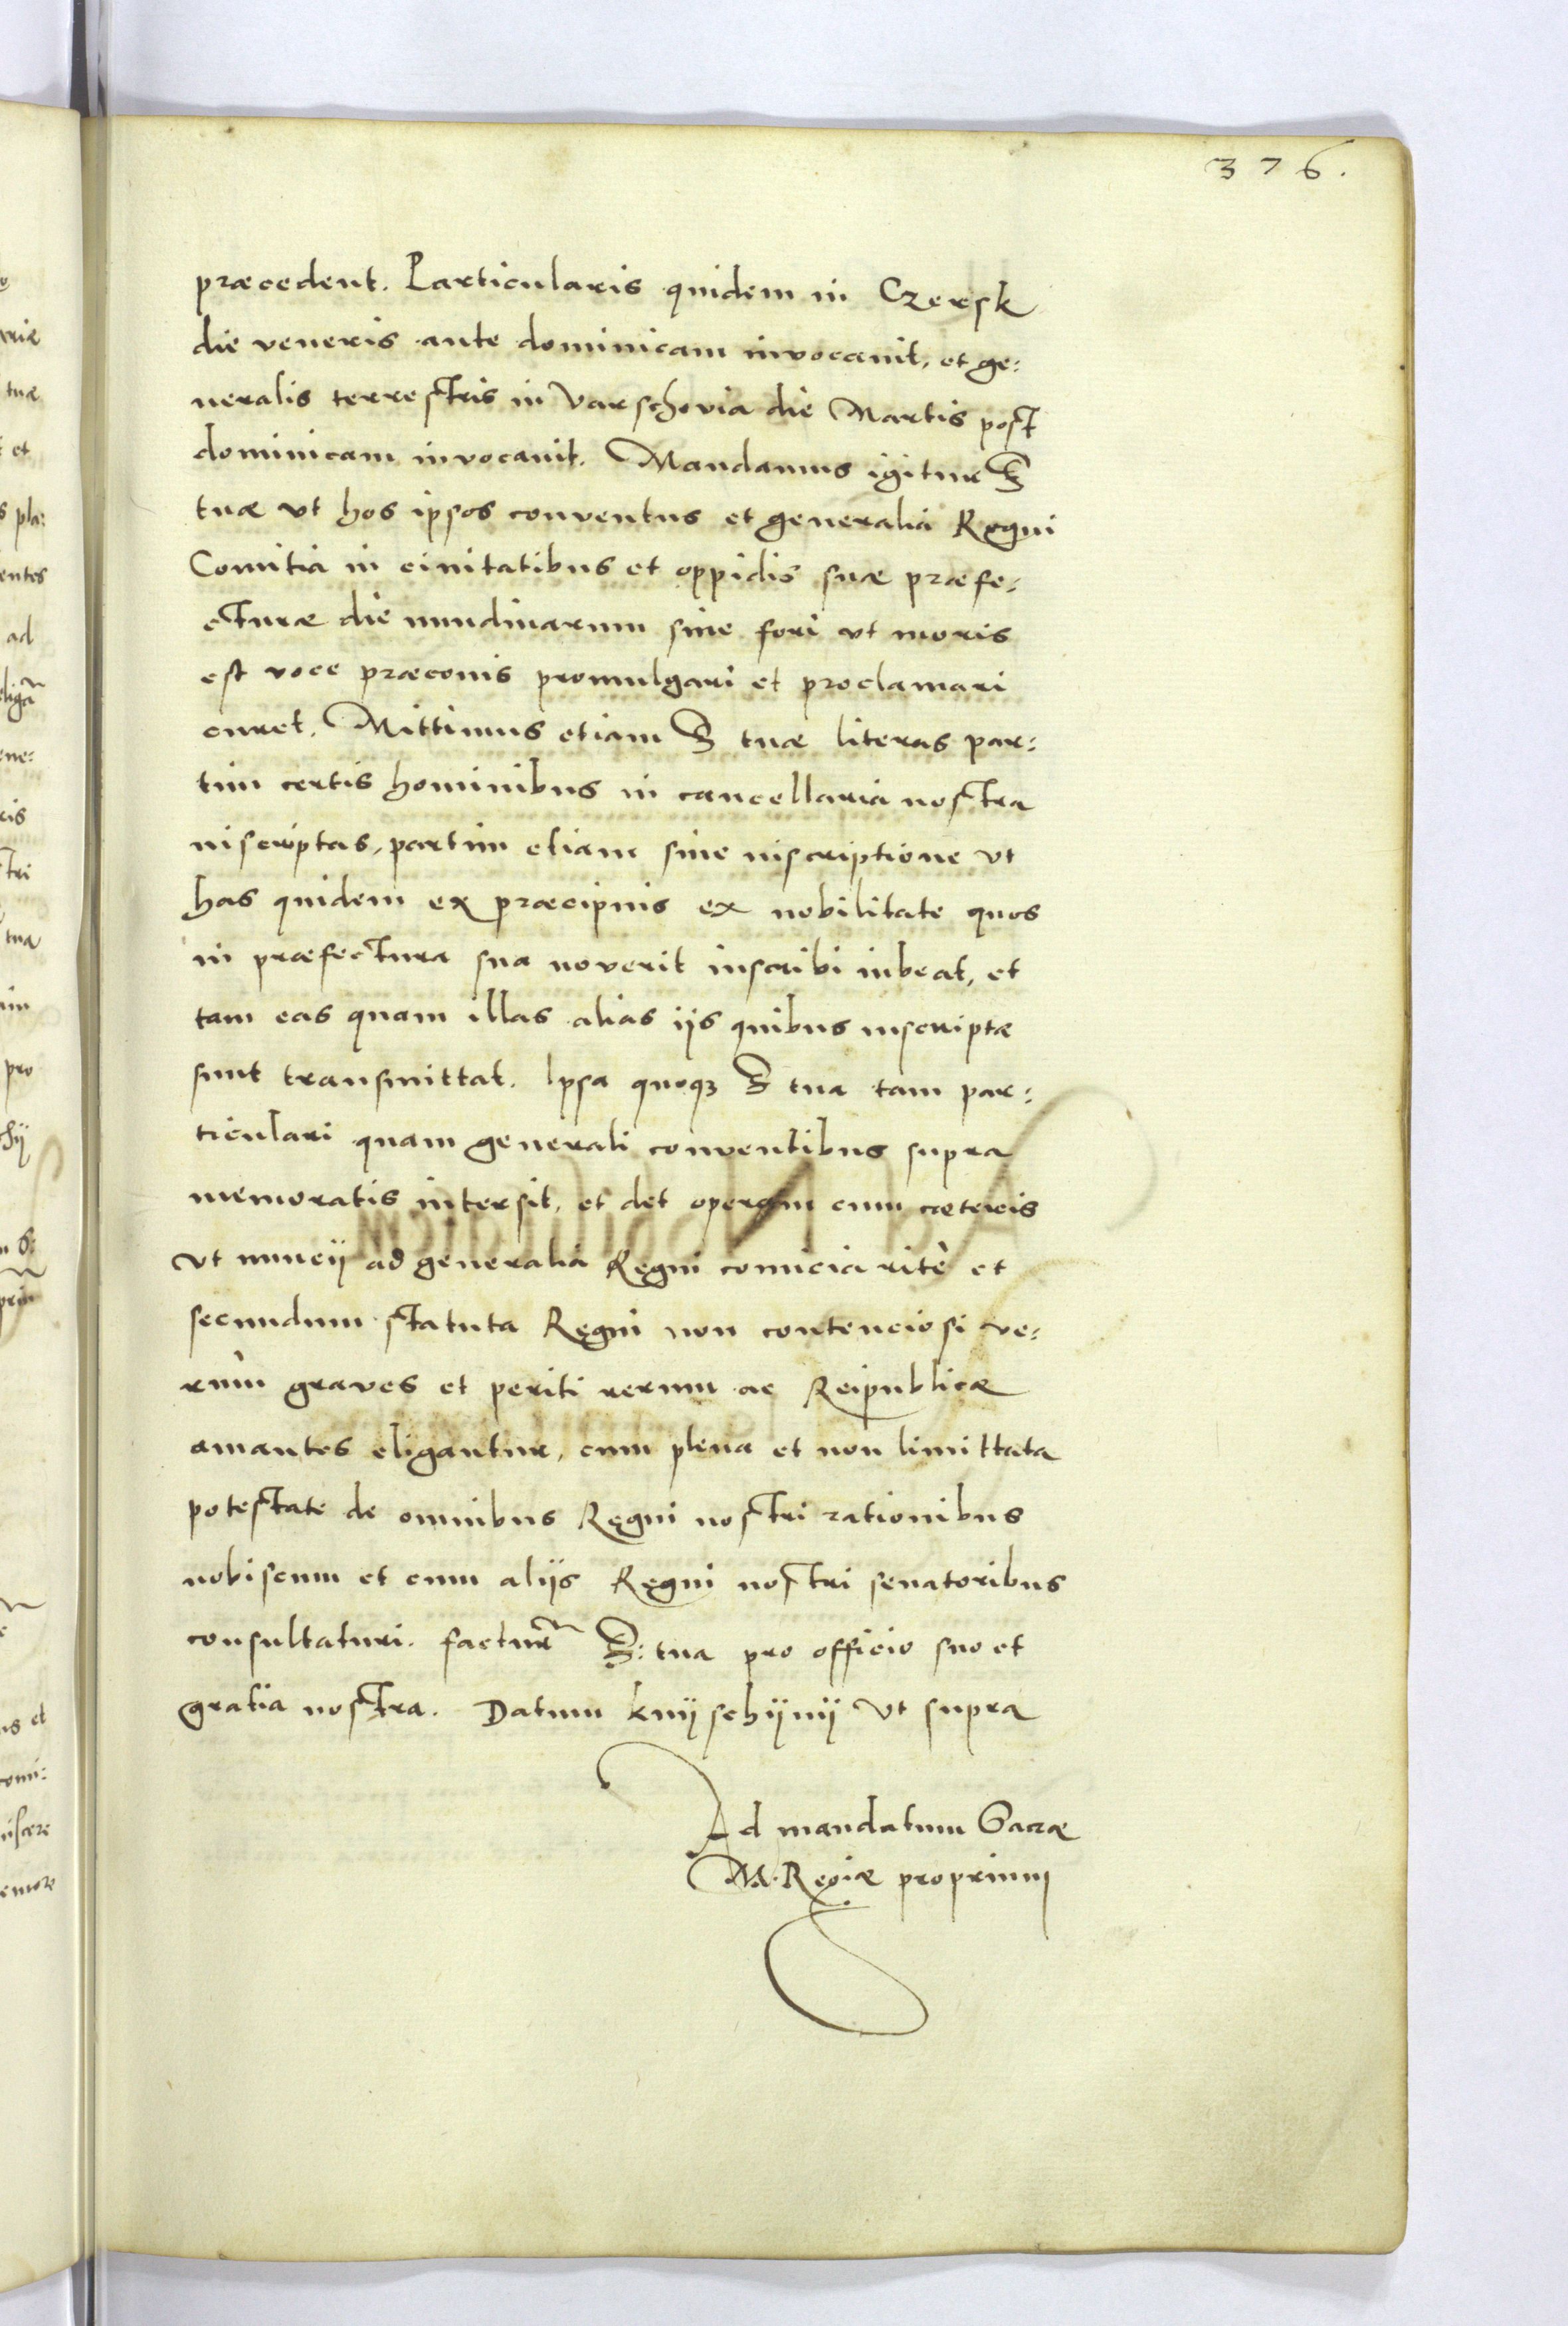 376.
præcedent. Particularis quidem in Czersk
die veneris ante dominicam invocauit, et ge:
neralis terrestris in Varschovia die Martis post
dominicam invocauit. Mandamus igitur S
tuæ vt hos ipsos conventus et generalia Regni
Comitia in ciuitatibus et oppidis suæ præfe:
cturæ die nundinarum siue fori vt moris
est voce præconis promulgari et proclamari
curet. Mittimus etiam S tuæ literas par:
tim certis hominibus in cancellaria nostra
inscriptas, partim etiam sine inscriptione vt
has quidem ex præcipuis ex nobilitate quos
in præfectura sua noverit inscribi iubeat, et
tam eas quam illas alias iis quibus inscriptæ
sunt transmittat. Ipsa quoqꝫ S tua tam par:
ticulari quam generali conventibus supra
memoratis intersit, et det operam cum cæteris
vt nuncij ad generalia Regni comicia ritè et
secundum statuta Regni non contenciosi ve:
rùm graves et periti rerum ac Reipublicæ
amantes eligantur, cum plena et non limittata
potestate de omnibus Regni nostri rationibus
nobiscum et cum alijs Regni nostri senatoribus
consultaturi. factur̃ S: tua pro officio suo et
gratia nostra. Datum knijschijnij vt supra
Ad mandatum Sacræ
M. Regiæ proprium